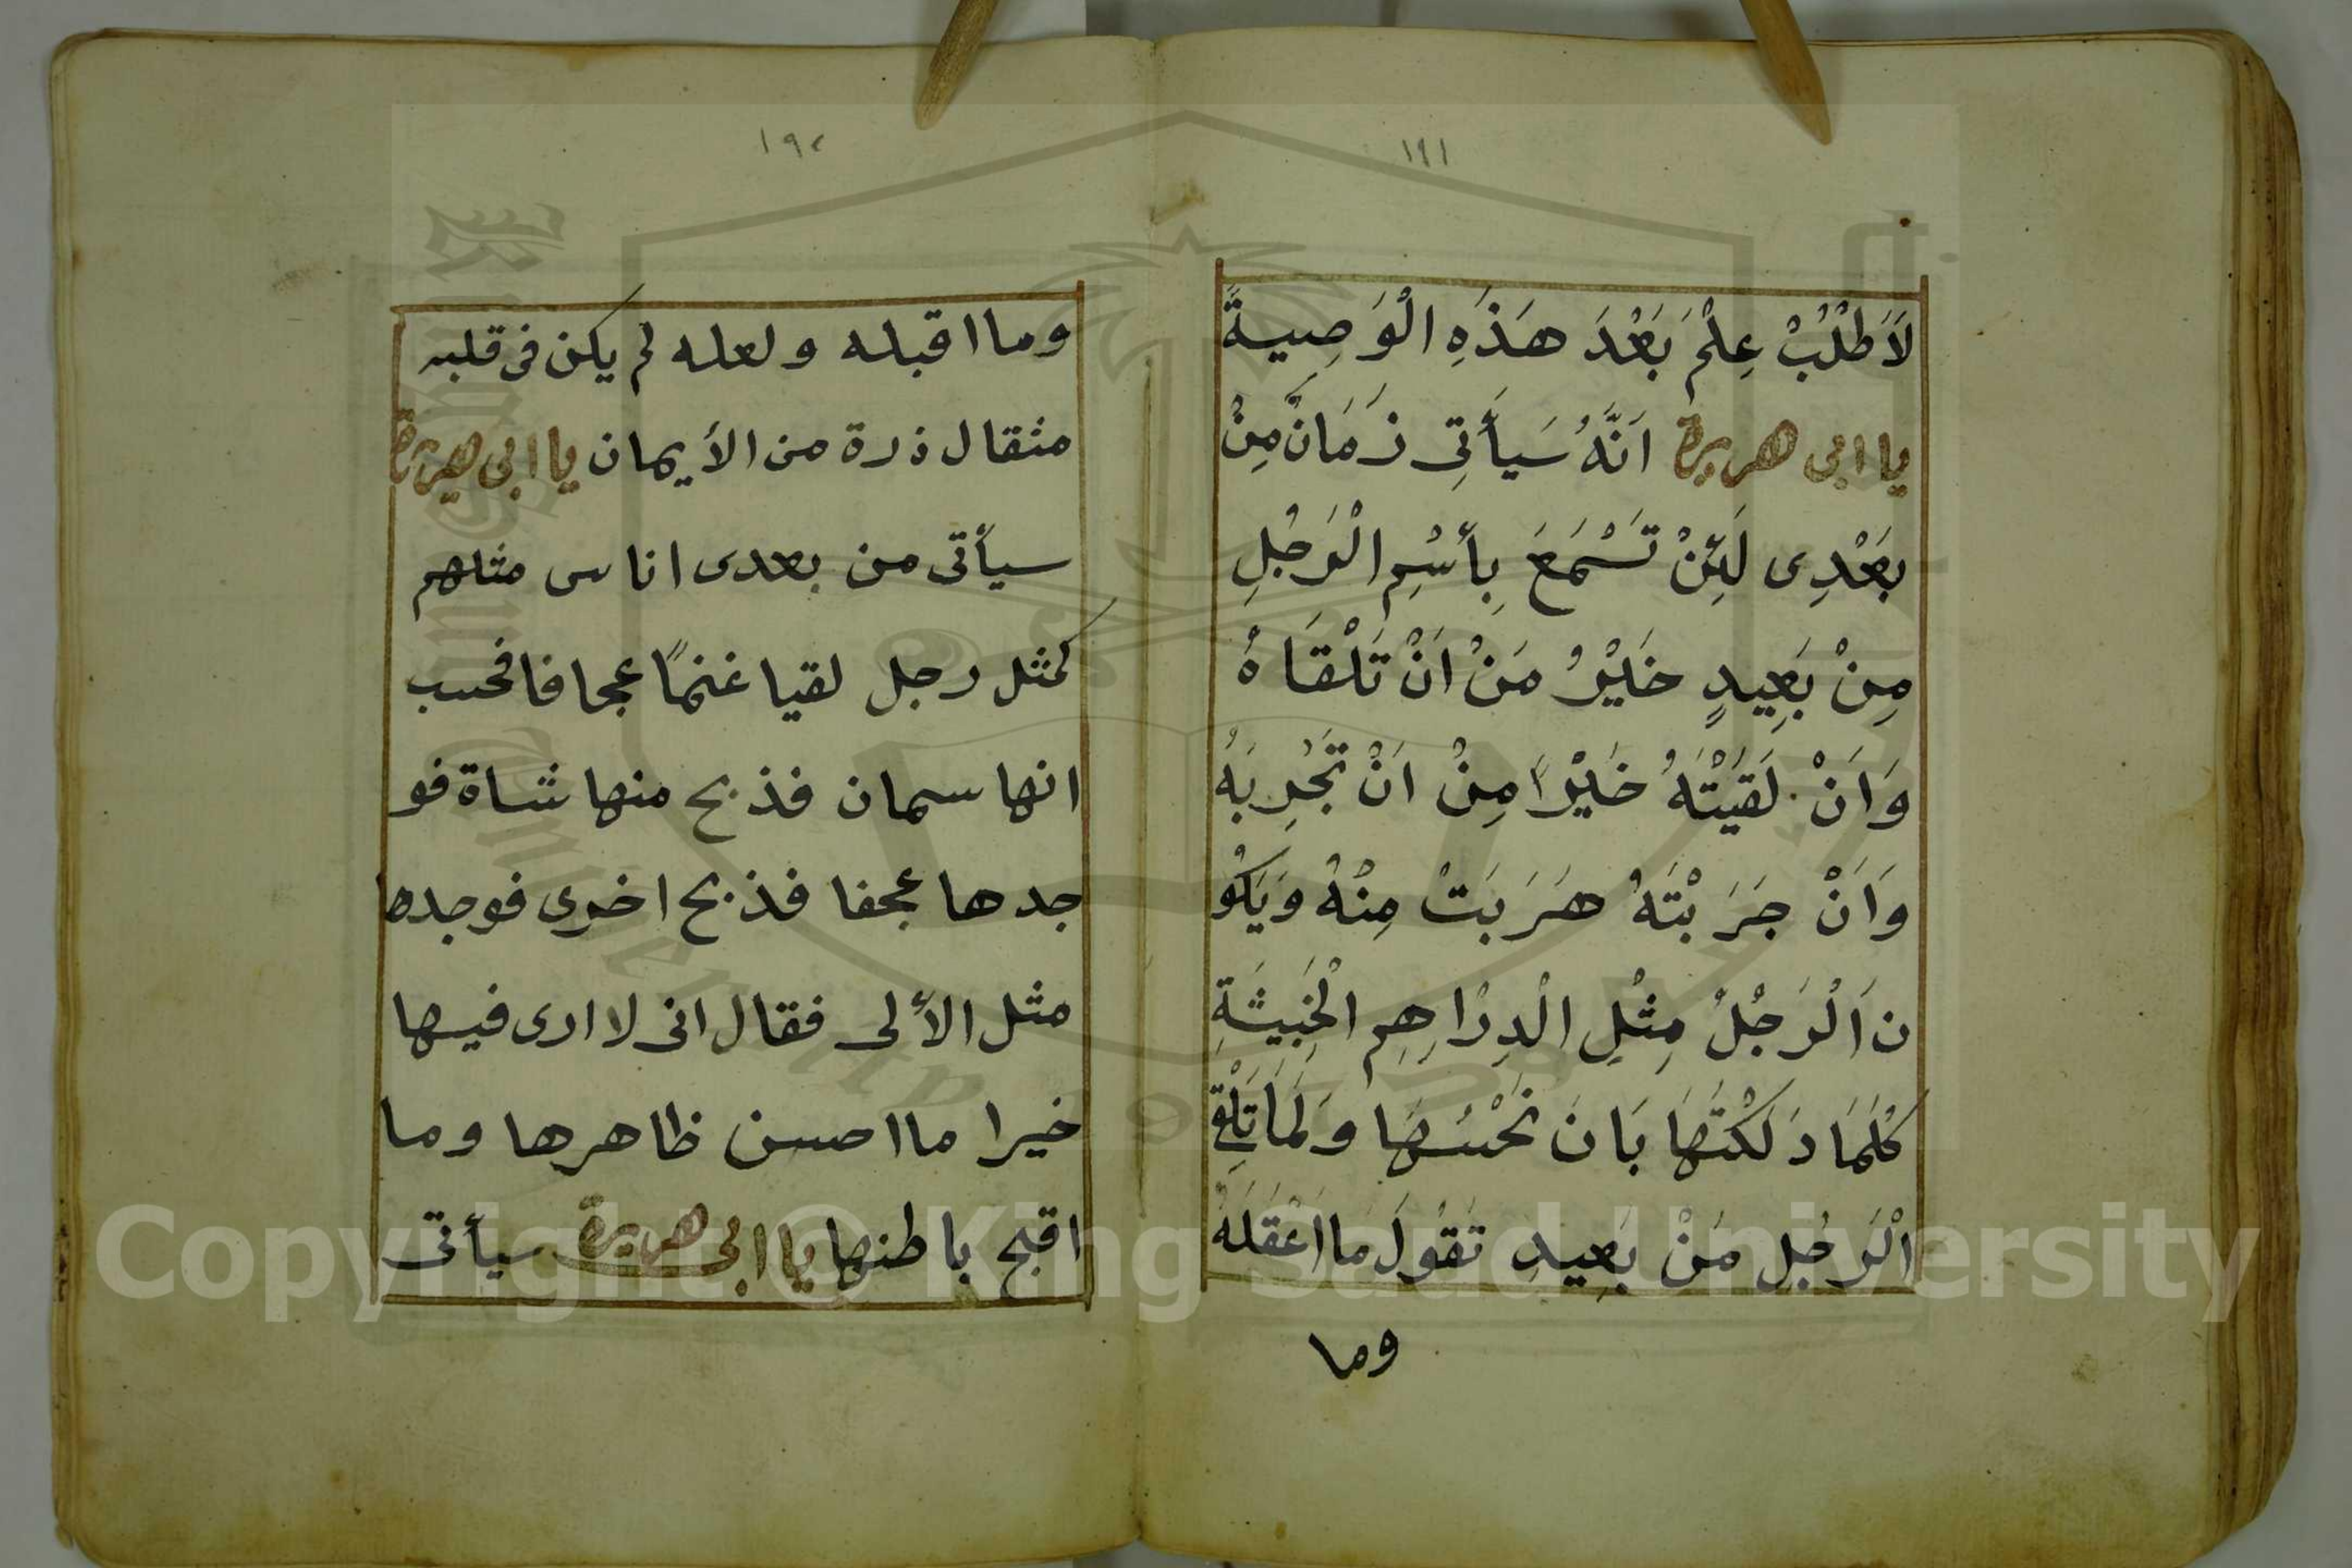 ١٩١
لَاَطْلُبْ عِلْمَ بَعْدَ هَذَهِ الْوَصِيةً
يا ابى هريرة اَنَّهُ سَيأَتِى زَمَانٌ مِنْ
بَعْدِى لَئِنْ تَسْمَعَ بِأسْمِ الْرَجُلِ
مِنْ بَعِيدٍ خَيْرُ مَنْ اَنْ تَلْقَاهُ
وَاَنْ لَقَيْتَهُ خَيْرًا مِنْ اَنْ تَجْرِبَهُ
وَاَنْ جَرَبْتَهُ هَرَبَتْ مِنْهُ وَيَكُو
نَ اَلْرَجُلُ مِثْلِ الْدِرْاهِمِ الْخَبِيثَةِ
كُلَمَا دَلَكْتَهَا بَانَ نَحْسُهَا وَلَمَا تَلْقِ
الْرَجُلِ مَنْ بَعِيدِ تَقُولَ مَا اَعْقَلَهُ
وما
١٩٢
وما اقبله ولعله لم يكن فى قلبه
مثقال ذرة من الأيمان يا ابى هريرة
سيأتى من بعدى اناس مثلهم
كمثل رجل لقيا غنمًا عجافا فحسب
انها سمان فذبح منها شاة فو
جدها عجفا فذبح اخرى فوجدها
مثل الألى فقال انى لا ارى فيها
خيرا ما احسن ظاهرها وما
اقبح باطنها يا ابى هريرة سيأتى
Copyright © King Saud University